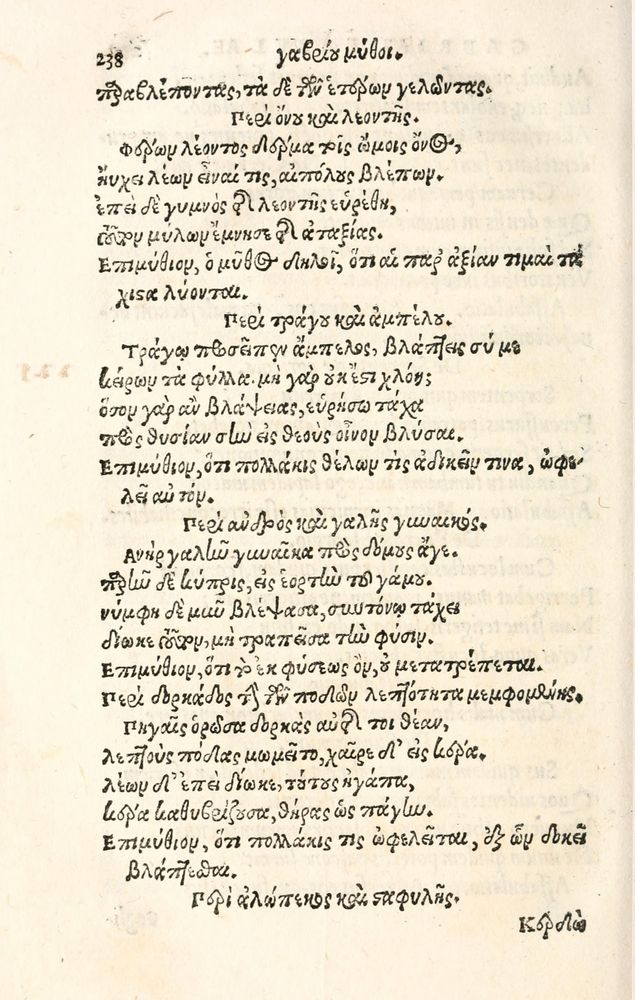 238 γαβρίου μύθοι.
παραβλέποντας, τὰ δὲ τῶν ἑτέρων γελῶντας.
Περὶ ὄνου καὶ λεοντῆς.
Φέρων λέοντος δέρμα τοῖς ὤμοις ὄνος,
ηὔχει λέων εἶναί τις, αἰπόλους βλέπων.
ἐπεὶ δὲ γυμνὸς τῆς λεοντῆς εὑρέθη,
μύλων ἔμνησε τῆς ἀταξίας.
Επιμύθιον, ὁ μῦθος δηλοῖ, ὅτι αἱ παρ' ἀξίαν τιμαὶ τά
χιστα λύονται.
Περὶ τράγου καὶ ἀμπέλου.
Τράγῳ προσεῖπεν ἄμπελος, βλάπτεις σύ με
κείρων τὰ φύλλα. μὴ γὰρ οὐκ ἔστι χλόη;
ὅσον γὰρ ἂν βλάψειας, εὑρήσω τάχα
πρὸς θυσίαν σὴν εἰς θεοὺς οἶνον βλύσαι.
Επιμύθιον, ὅτι πολλάκις θέλων τὶς ἀδικεῖν τινα, ὠφε-
λεῖ αὐτόν.
Περὶ ἀνδρὸς καὶ γαλῆς γυναικός.
Ανὴρ γαλῆν γυναῖκα πρὸς δόμους ἄγε.
παρῆν δὲ κύπρις, εἰς ἑορτὴν τοῦ γάμου.
νύμφη δὲ μῦν βλέψασα, συντόνῳ τάχει
δίωκε τοῦτον, μὴ τραπεῖσα τὴν φύσιν.
Επιμύθιον, ὅτι τὸ ἐκ φύσεως ὂν, οὐ μετατρέπεται.
Περὶ δορκάδος τὴν τῶν ποδῶν λεπτότητα μεμφομένης.
Πηγαῖς ὁρῶσα δορκὰς αὐτῆς τοι θέαν,
λεπτοὺς πόδας μωμεῖτο, χαῖρε δ' εἰς κέρα.
λέων δ' ἐπεὶ δίωκε, τούτους ἠγάπα,
κέρα καθυβρίζουσα, θήρας ὡς πάγην.
Επιμύθιον, ὅτι πολλάκις τις ὠφελεῖται, ἐξ ὧν δοκεῖ
βλάπτεσθαι.
Περὶ ἀλώπεκος καὶ σταφυλῆς.
Κερδὼ